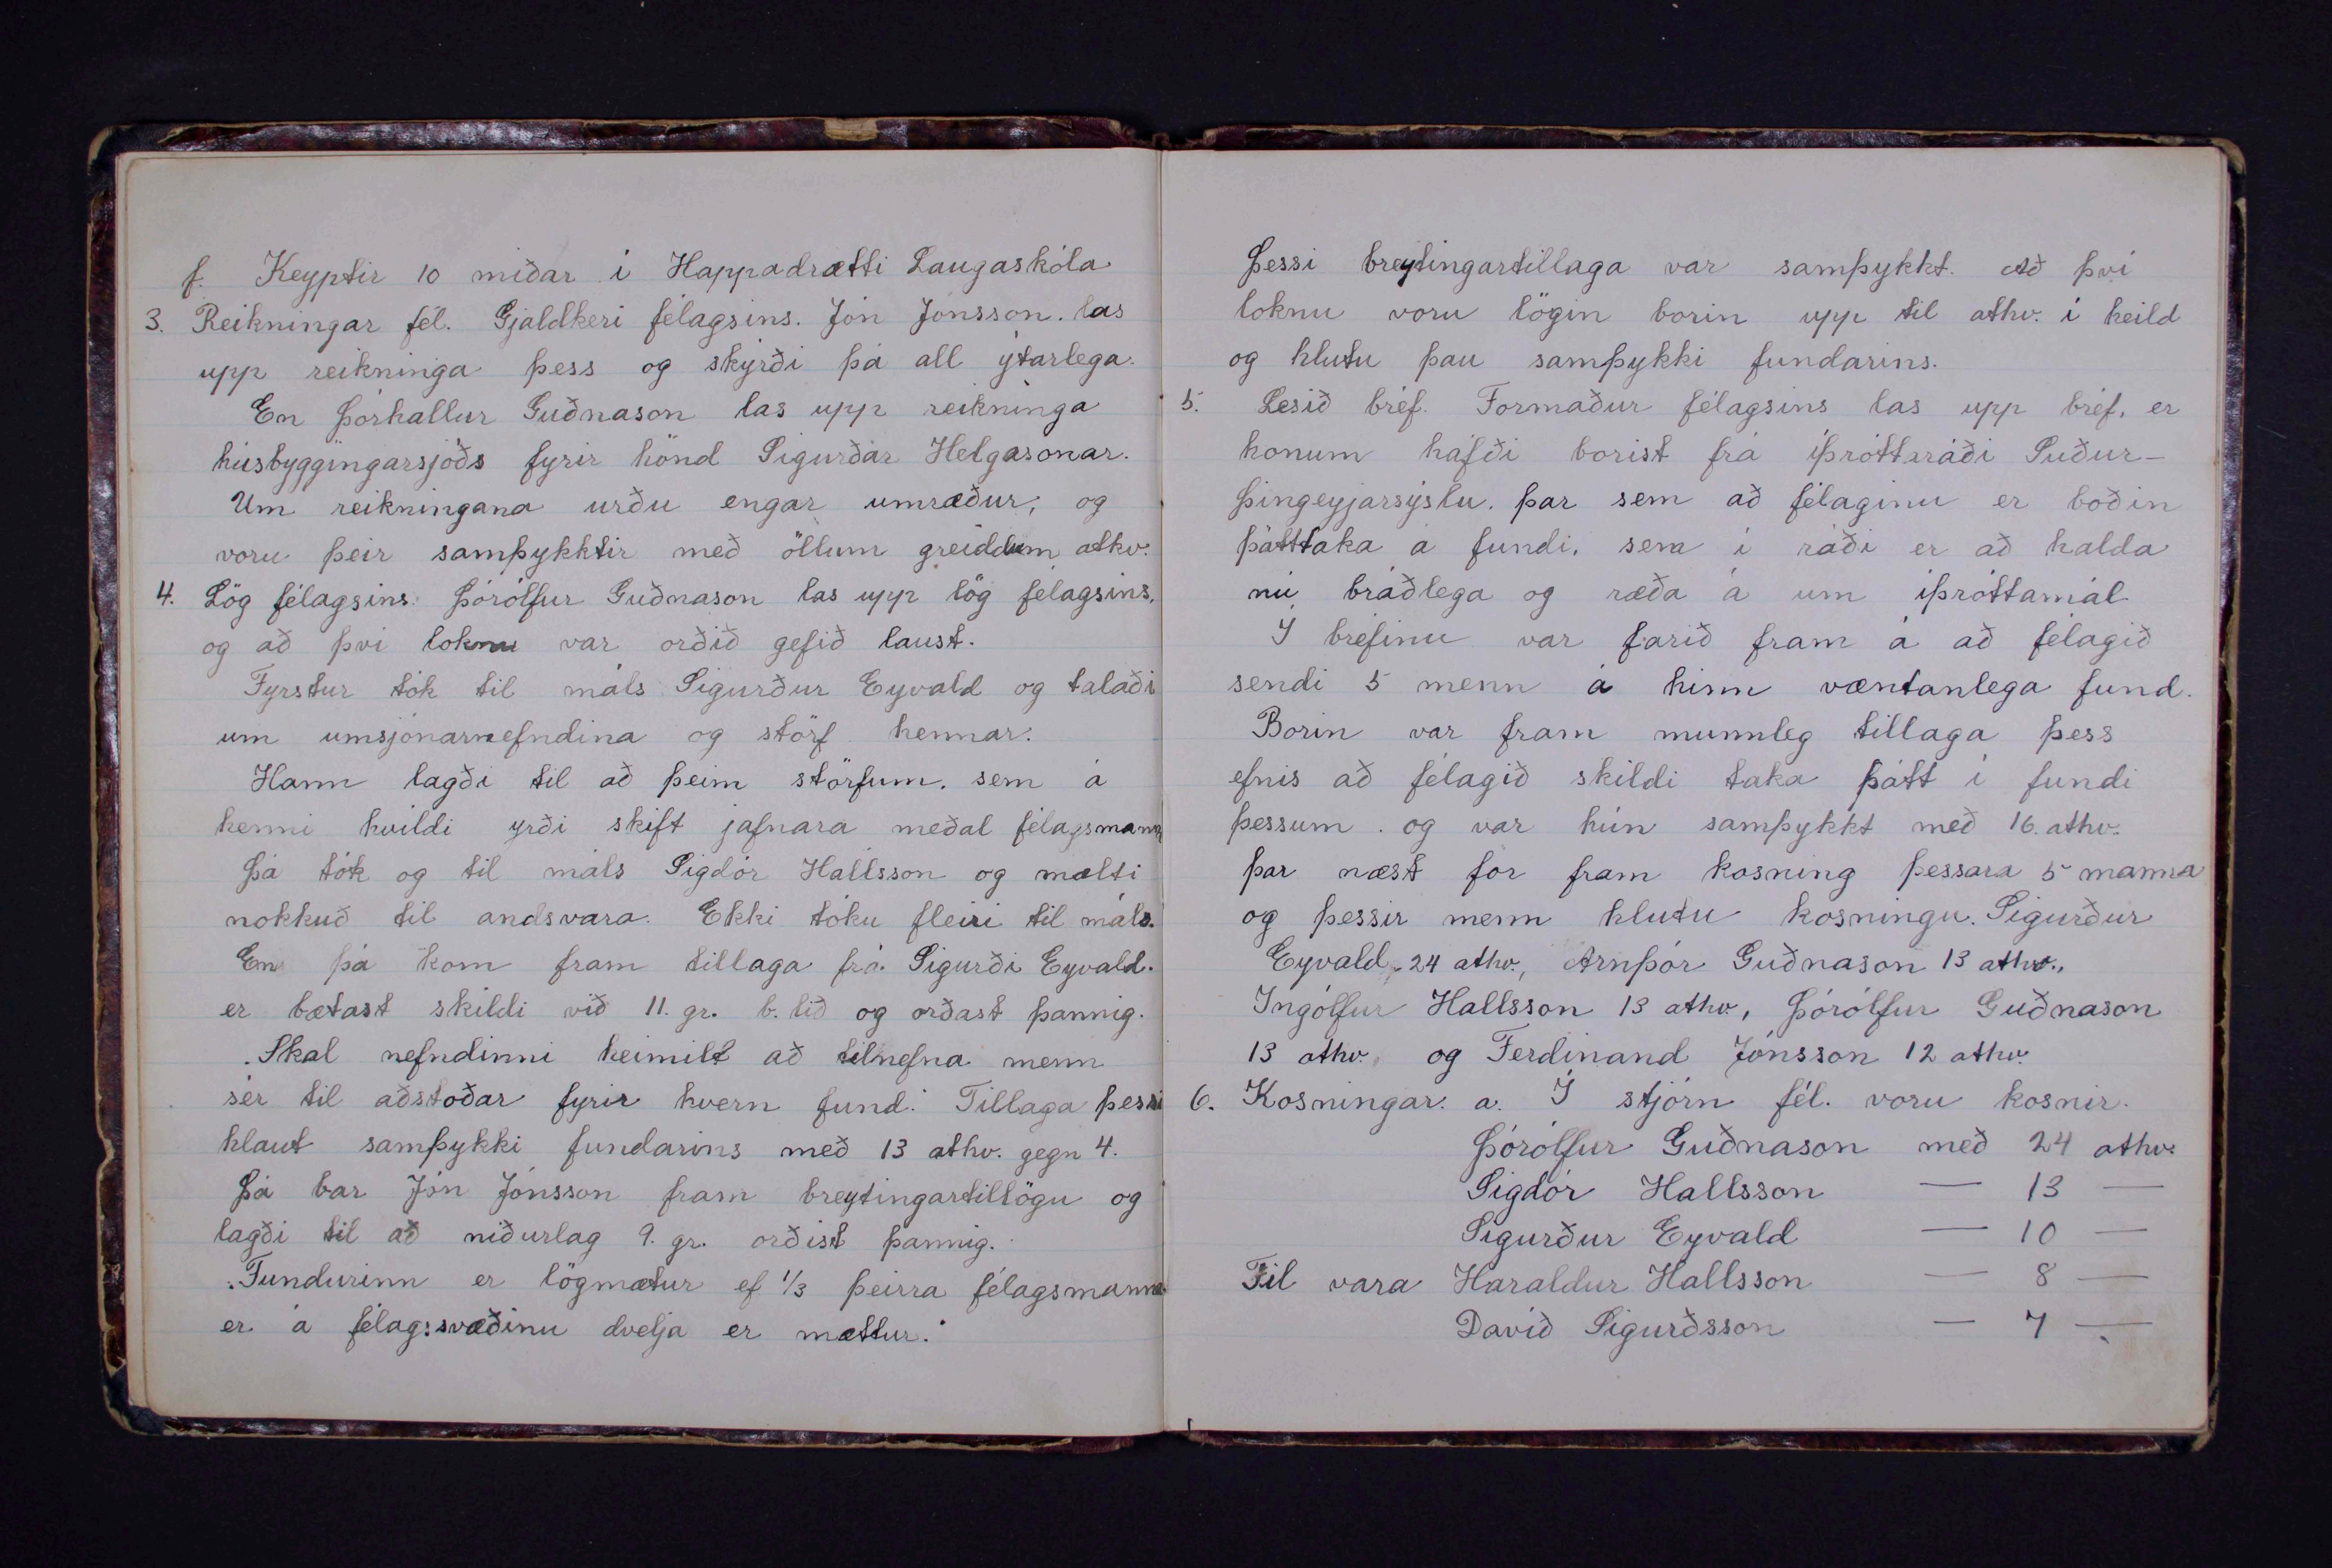 f. Keyptir 10 miðar í Happadrætti Laugaskóla
3. Reikningar fél. Gjaldkeri félagsins. Jón Jónsson. las
upp reikninga þess og skýrði þá all ýtarlega.
En Þórhallur Guðnason las upp reikninga
húsbyggingarsjóðs fyrir hönd Sigurðar Helgasonar.
Um reikningana urðu engar umræður, og
voru þeir samþykktir með öllum greiddum atkv.
4. Lög félagsins. Þórólfur Guðnason las upp lög félagsins,
og að því loknu var orðið gefið laust.
Fyrstur tók til máls Sigurður Eyvald og talaði
um umsjónarnefndina og störf hennar.
Hann lagði til að þeim störfum. sem á
henni hvíldi yrði skift jafnara meðal félagsmanna
Þá tók og til máls Sigdór Hallsson og mælti
nokkuð til andsvara. Ekki tóku fleiri til máls.
En þá kom fram tillaga frá Sigurði Eyvald.
er bætast skildi við 11. gr. b. lið og orðast þannig.
„Skal nefndinni heimilt að tilnefna menn
sér til aðstoðar fyrir hvern fund." Tillaga þessi
hlaut samþykki fundarins með 13 athv. gegn 4.
Þá bar Jón Jónsson fram breytingartillögu og
lagði til að niðurlag 9. gr. orðist þannig.
„Fundurinn er lögmætur ef 1/3 þeirra félagsmanna
er á félagssvæðinu dvelja er mættur."
Þessi breytingartillaga var samþykkt. Að því
loknu voru lögin borin upp til athv. í heild
og hlutu þau samþykki fundarins.
5. Lesið bréf. Formaður félagsins las upp bréf, er
honum hafði borist frá íþróttaráði Suður-
Þingeyjarsýslu. þar sem að félaginu er boðin
þátttaka á fundi, sem í ráði er að halda
nú bráðlega og ræða á um íþróttamál.
Í bréfinu var farið fram á að félagið
sendi 5 menn á hinn væntanlega fund.
Borin var fram munnleg tillaga þess
efnis að félagið skildi taka þátt í fundi
þessum. og var hún samþykkt með 16. athv.
þar næst fór fram kosning þessara 5 manna
og þessir menn hlutu kosningu. Sigurður
Eyvald, 24 athv., Arnþór Guðnason 13 athv.,
Ingólfur Hallsson 13 athv, Þórólfur Guðnason
13 athv. og Ferdinand Jónsson 12 athv.
6. Kosningar. a. Í stjórn fél. voru kosnir.
Þórólfur Guðnason með 24 athv.
Sigdór Hallsson — 13 —
Sigurður Eyvald — 10 —
Til vara Haraldur Hallsson — 8 —
Davíð Sigurðsson — 7 —